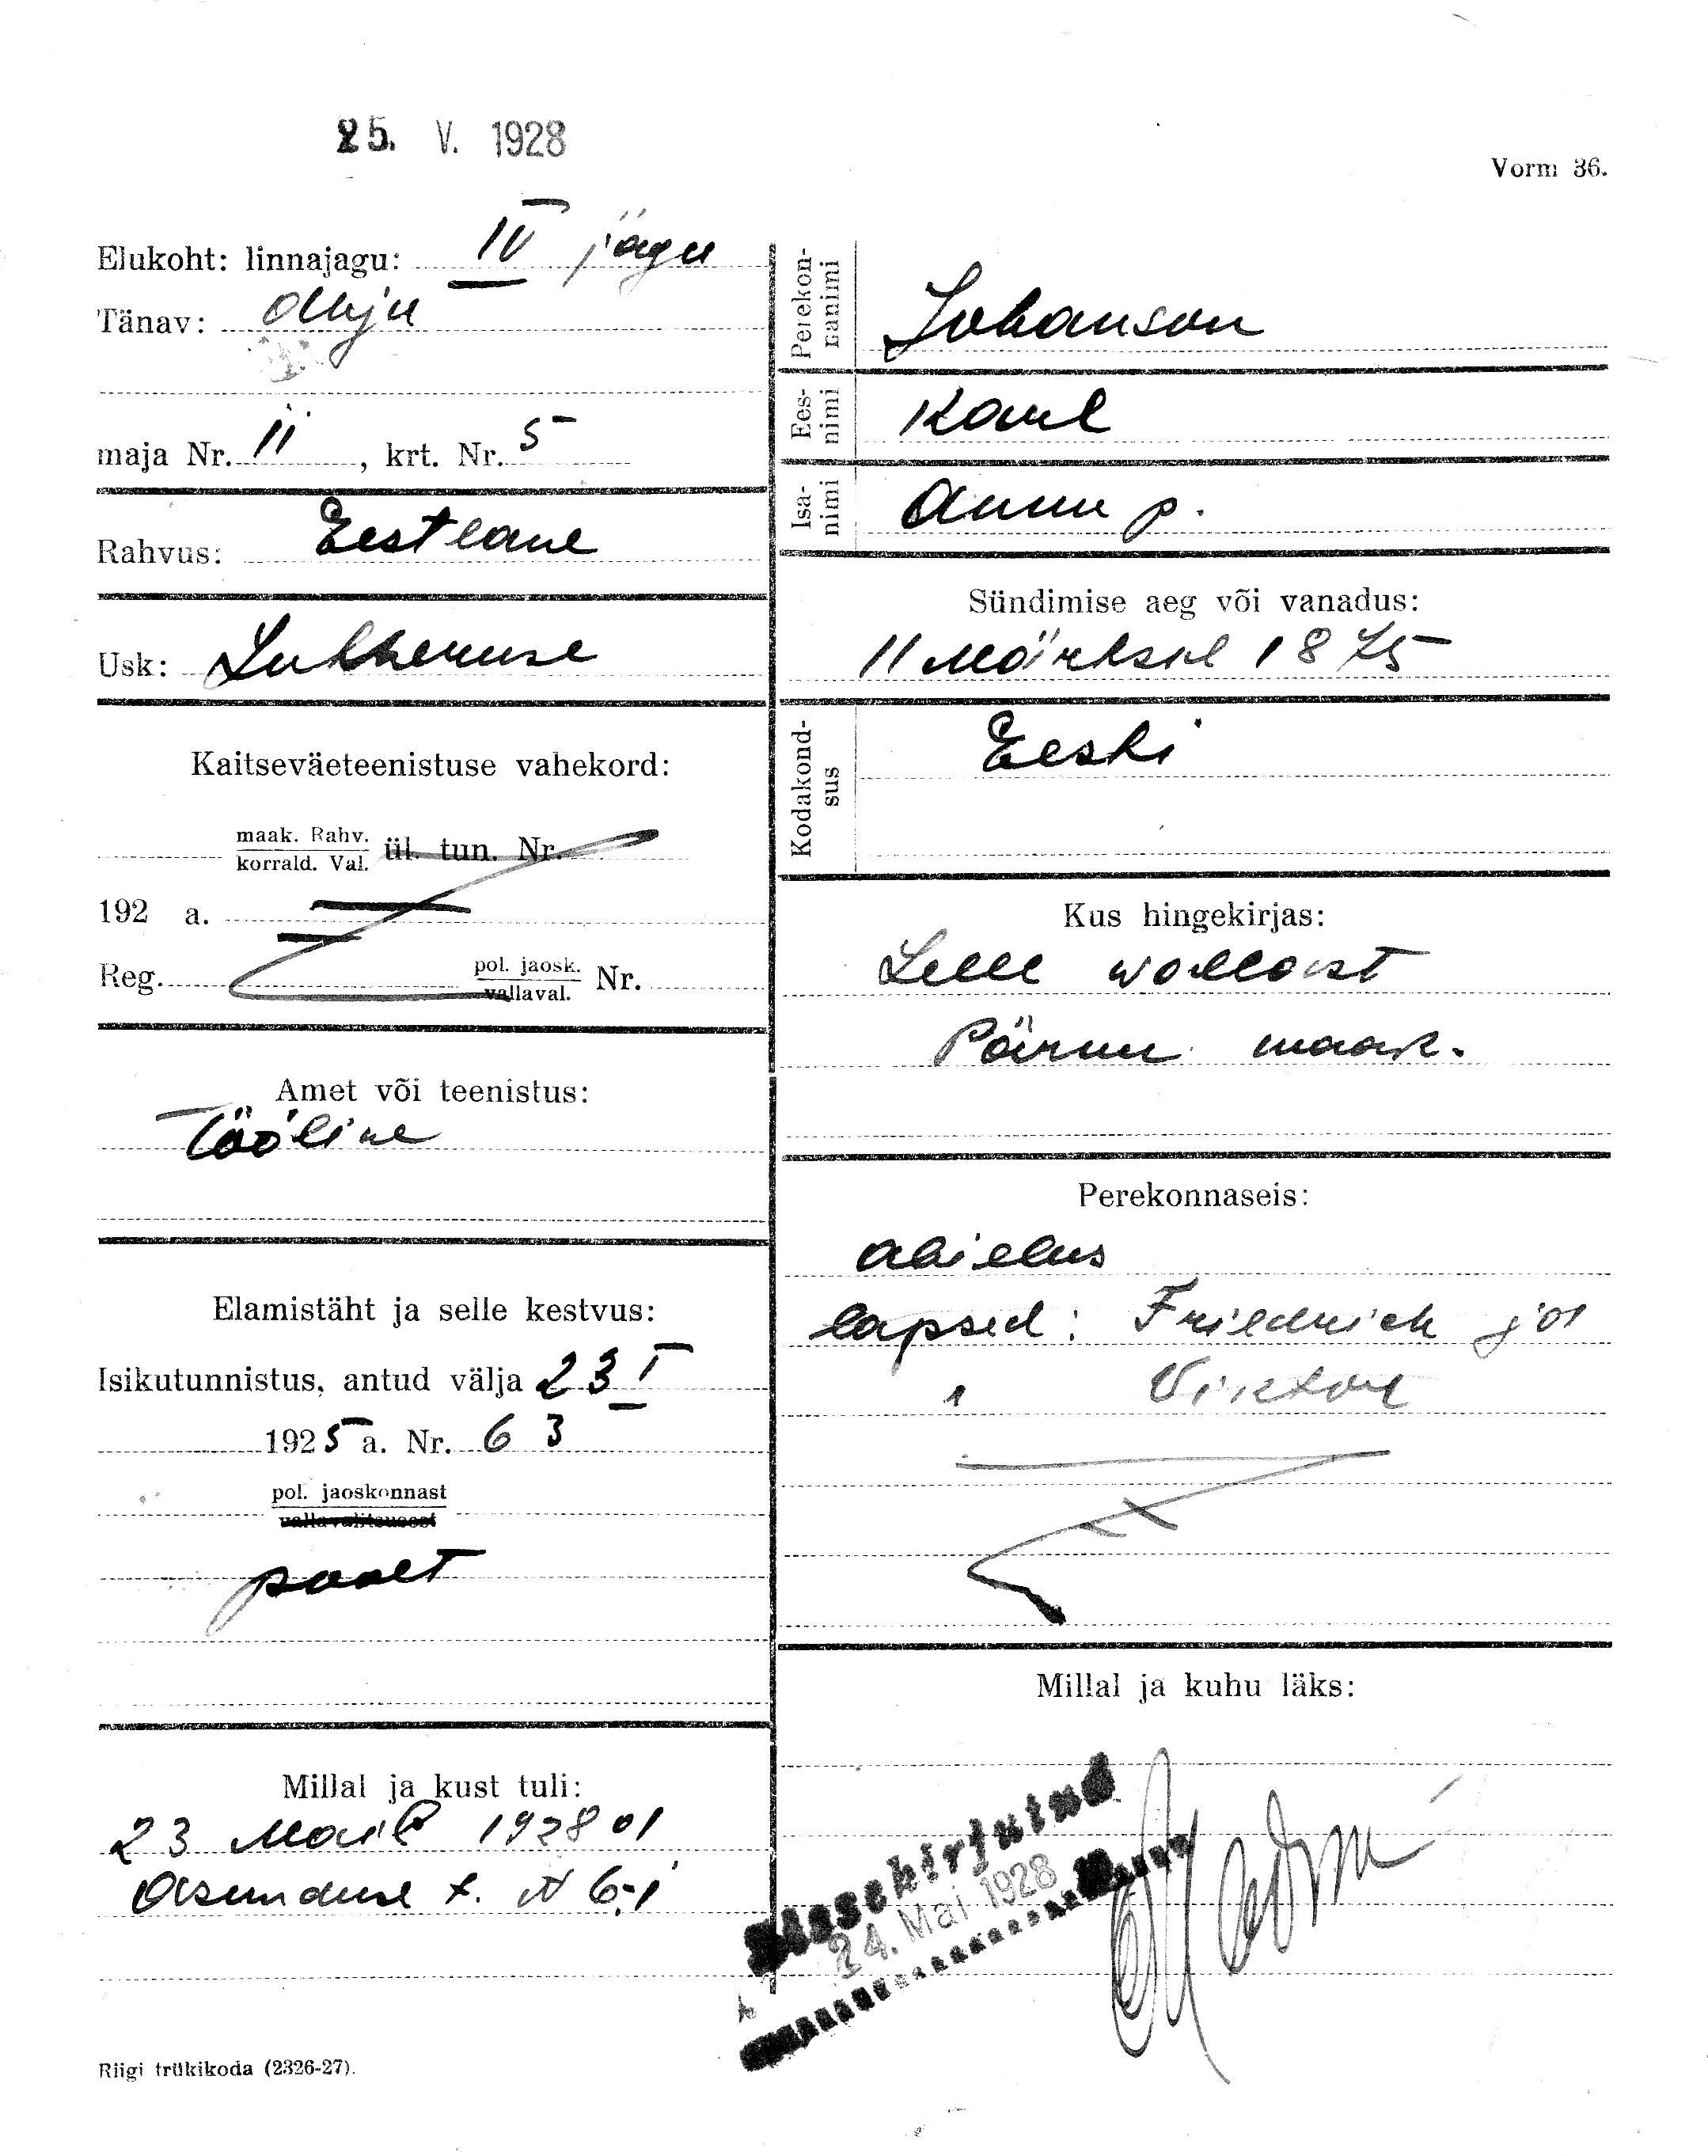 25. V. 1928
Vorm 36.
Elukoht: linnajagu: IV jagu
Tänav:
maja Nr. 11, krt. Nr. 5
Rahvus: Eestlane
Usk: Lutheruse
Kaitseväeteenistuse vahekord:
maak. Rahv.
korrald. Val. ül. tun. Nr.
192 a.
Reg. pol. jaosk. Nr.
vallaval.
Amet või teenistus:
Tööline
Elamistäht ja selle kestvus:
Isikutunnistus, antud välja 23 I
1925 a. Nr. 63
pol. jaoskonnast
vallavalitsusest
poolt
Millal ja kust tuli:
23 Mail 1928 a
Asunduse t. N 6-1
Riigi trükikoda (2326-27).
Perekonnanimi
Johanson
Eesnimi
Karl
Isanimi
Annu p.
Sündimise aeg või vanadus:
11 Märtsil 1875
Kodakondsus
Eesti
Kus hingekirjas:
Lelle wallast
Pärnu maak.
Perekonnaseis:
abielus
lapsed: Friedrich ja
Viktor
Millal ja kuhu läks:
Sissekirjutud
24. Mai 1928